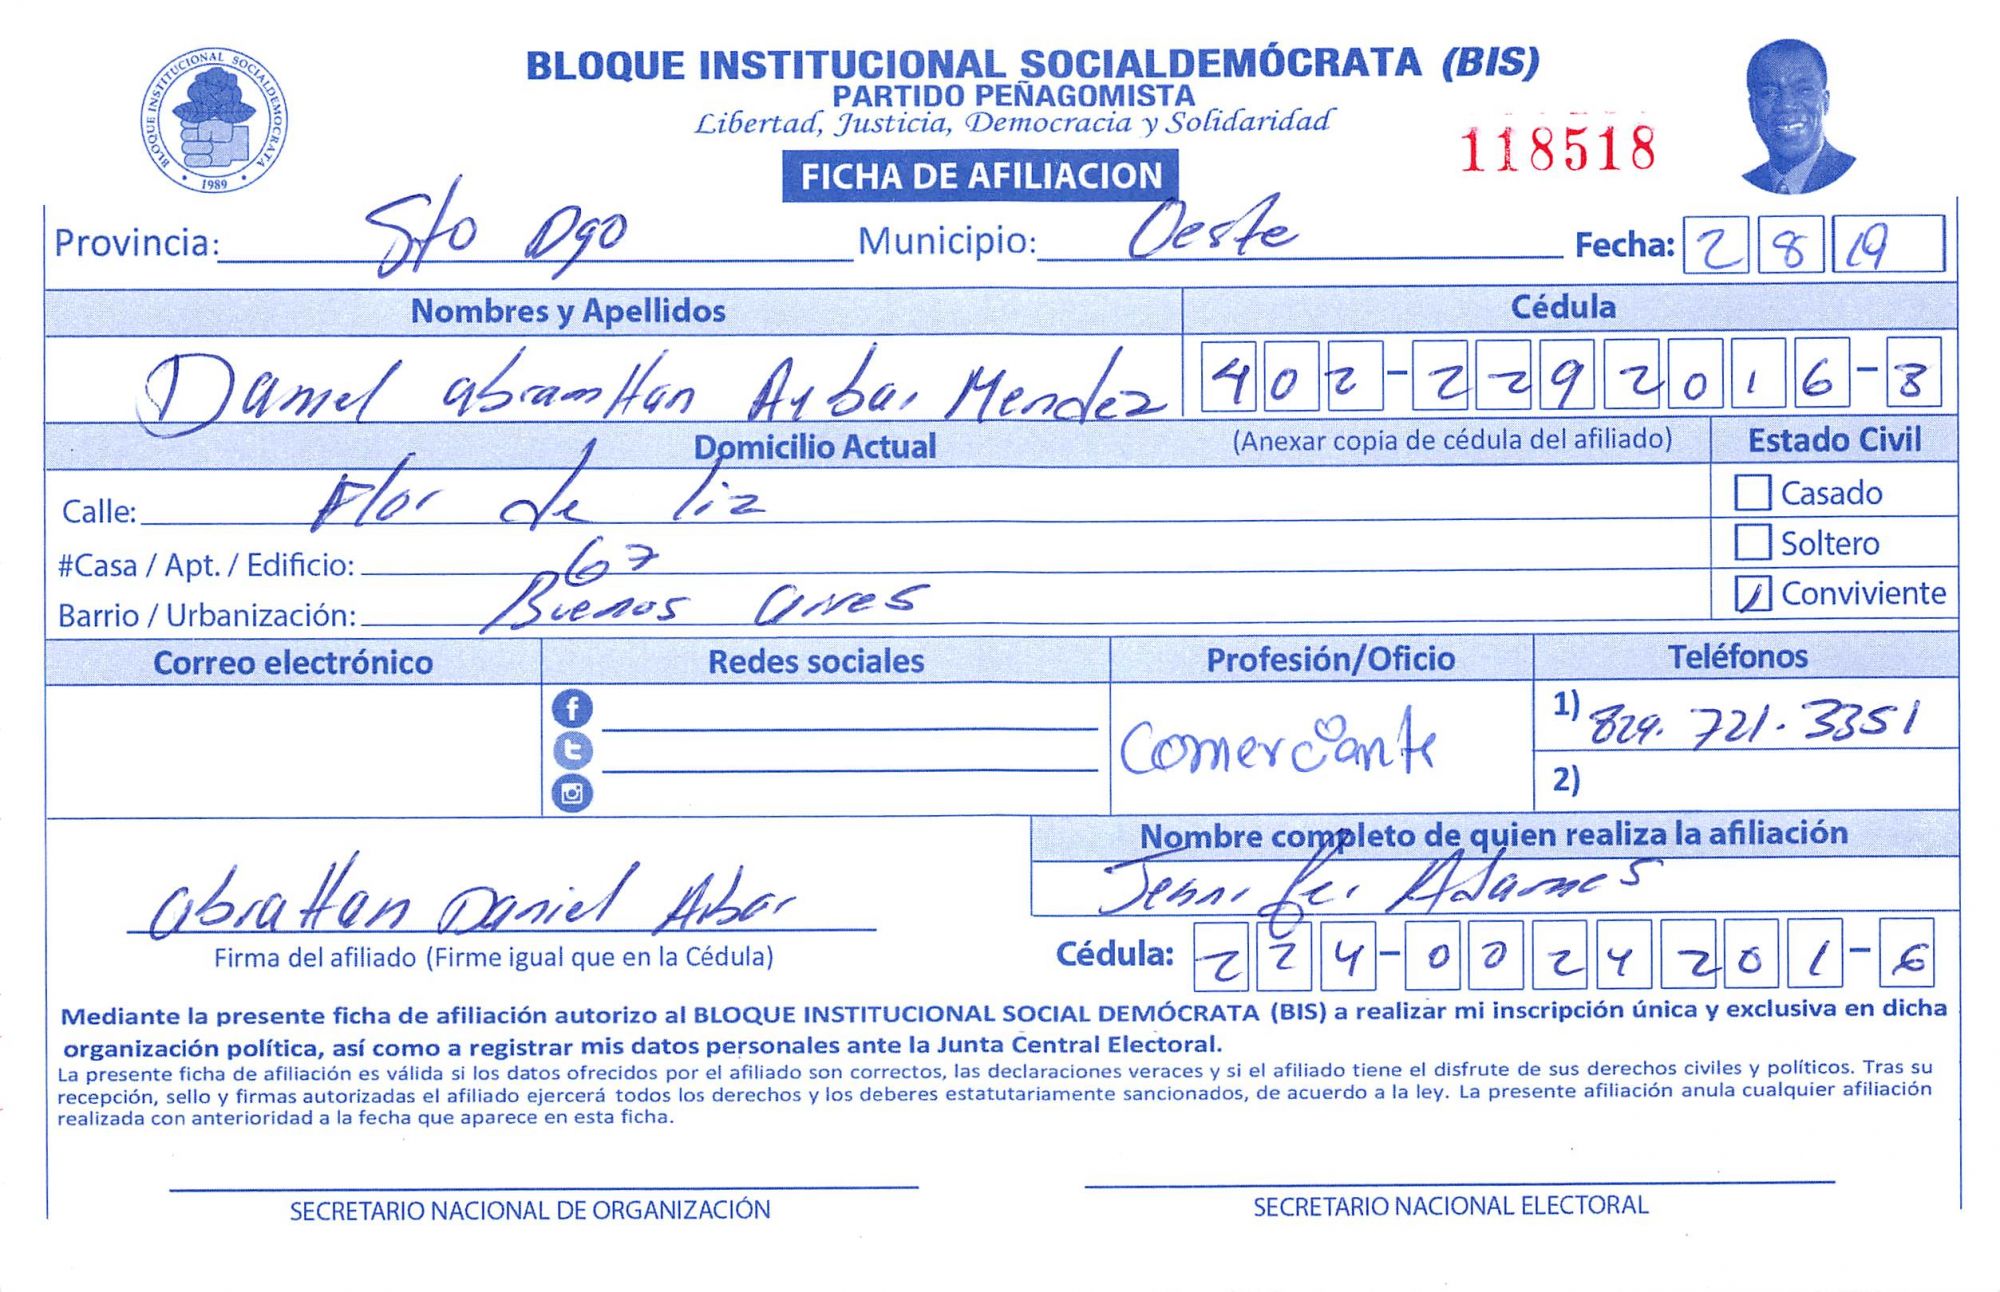 BLOQUE INSTITUCIONAL SOCIALDEMÓCRATA (BIS)
PARTIDO PEÑAGOMISTA
Libertad, Justicia, Democracia y Solidaridad
118518
BLOQUE INSTITUCIONAL SOCIALDEMOCRATA
1989
FICHA DE AFILIACION
Provincia: Sto Dgo Municipio: Oeste Fecha: 2 8 19
Nombres y Apellidos Cédula
Daniel abramHan Aybar Mendez 402-2292016-3
Domicilio Actual (Anexar copia de cédula del afiliado) Estado Civil
Calle: Flor de liz Casado
#Casa / Apt. / Edificio: 67 Soltero
Barrio / Urbanización: Buenos aires Conviviente
Correo electrónico Redes sociales Profesión/Oficio Teléfonos
Comerciante 1) 829.721.3351
2)
Nombre completo de quien realiza la afiliación
Jennifer Adames
abraHan Daniel Aibar
Firma del afiliado (Firme igual que en la Cédula) Cédula: 224-0024201-6
Mediante la presente ficha de afiliación autorizo al BLOQUE INSTITUCIONAL SOCIAL DEMÓCRATA (BIS) a realizar mi inscripción única y exclusiva en dicha
organización política, así como a registrar mis datos personales ante la Junta Central Electoral.
La presente ficha de afiliación es válida si los datos ofrecidos por el afiliado son correctos, las declaraciones veraces y si el afiliado tiene el disfrute de sus derechos civiles y políticos. Tras su
recepción, sello y firmas autorizadas el afiliado ejercerá todos los derechos y los deberes estatutariamente sancionados, de acuerdo a la ley. La presente afiliación anula cualquier afiliación
realizada con anterioridad a la fecha que aparece en esta ficha.
SECRETARIO NACIONAL DE ORGANIZACIÓN SECRETARIO NACIONAL ELECTORAL